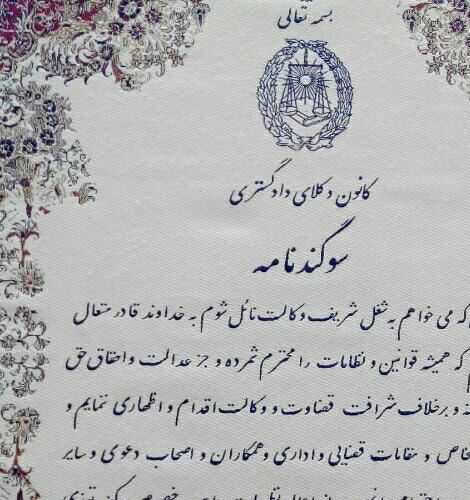 بسمه تعالی
کانون وکلای دادگستری
سوگندنامه
که می خواهم به شغل شریف وکالت نائل شوم به خداوند قادر متعال
که همیشه قوانین و نظامات را محترم شمرده و جز عدالت و احقاق حق
و برخلاف شرافت قضاوت و وکالت اقدام و اظهاری ننمایم و
مقامات قضایی و اداری و همکاران و اصحاب دعوی و سایر